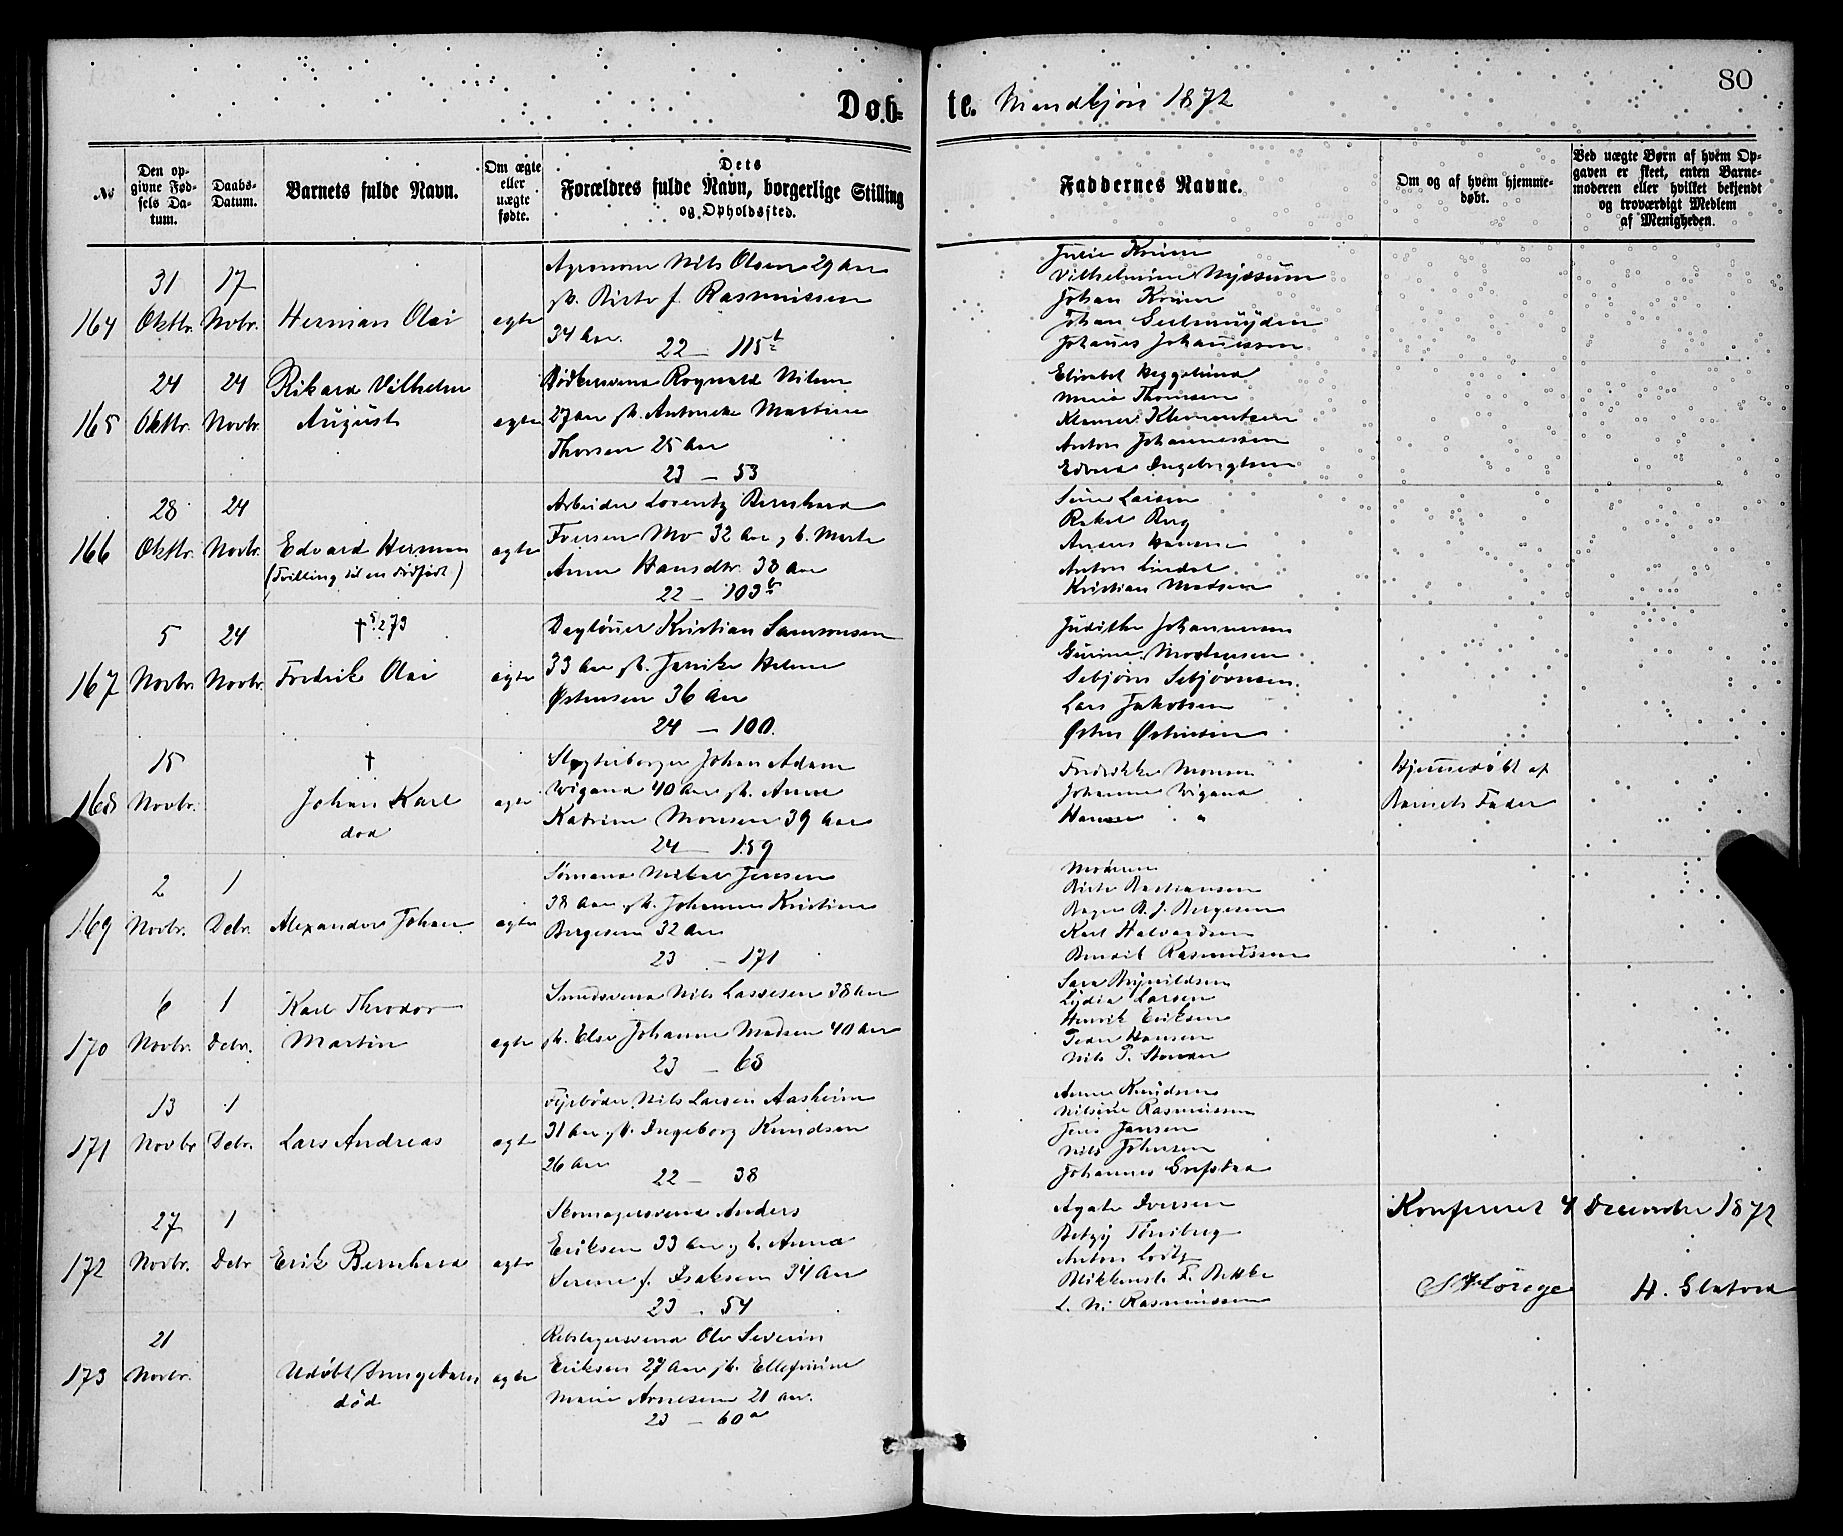 80
Døb= te. Mandkjøn 1872
No
Den op-
givne Fød-
sels Da-
tum.
Daabs-
Datum.
Barnets fulde Navn.
Om ægte
eller
uægte
fødte.
Dets
Forældres fulde Navn, borgerlige Stilling
og Opholdssted.
Faddernes Navne.
Om og af hvem hjemme-
døbt.
Ved uægte Børn af hvem Op-
gaven er skeet, enten Barne-
moderen eller hvilket bekjendt
og troværdigt Medlem
af Menigheden.
164
31
Oktbr.
17
Novbr.
Herman Olai
egte
Agronom Nils Olsen 29 Aar
f. Rasmussen
34 Aar.
22 — 115 b
Vilhelmine
Johan
Johan Geelmuyden
Johannes Johannessen
165
24
Oktbr.
24
Novbr.
Rikard Vilhelm
August
egte
Bødkersvend Rognald Nilsen
27 Aar Martine
Thorsen 25 Aar
23 — 53
Elisabet Heggelund
Marie Thomsen
Klemet Klementsen
Anton Johannessen
Edvard Ingebrigtsen
166
28
Oktbr.
24
Novbr.
Edvard Herman
(Tvilling til en dødfødt)
egte
Arbeider Lorentz Bernhard
Iversen Mo 32 Aar g. b. Marte
Anne Hansdtr. 38 Aar
22 — 103 b
Sine Larsen
Rakel Berg
Anders Hansen
Anton Lindal
Kristian Madsen
167
5
Novbr.
24
Novbr.
† 5/2 73
Fredrik Olai
egte
Dagløner Kristian Samsonsen
33 Aar Jannike Helene
Østensen 36 Aar
24 — 100.
Judithe Johannesen
Gurine Mortensen
Sebjørn Sebjørnsen
Lars Jakobsen
Østen Østensen
168
15
Novbr.
†
Johan Karl
død
egte
Slagterborger Johan Adam
Wigand 40 Aar Anne
Katrine Monsen 39 Aar
24 — 159
Fredrikke Monsen
Johanne Wigand
Hjemmedøbt af
Barnets Fader
169
2
Novbr.
1
Debr.
Alexander Johan
egte
Sømand Mikal Jensen
38 Aar Johanne Kristine
Bergesen 32 Aar
23 — 171
Moderen
Birte Bastiansen
Bager B. J. Bergesen
Karl Halvordsen
Bendik Rasmussen
170
6
Novbr.
1
Debr.
Karl Theodor
Martin
egte
Smedsvend Nils Lassesen 38 Aar
Else Johanne Madsen 40 Aar
23 — 68
Sara Brynildsen
Lydia Larsen
Henrik Eriksen
Peder Hansen
Nils P.
171
13
Novbr
1
Debr.
Lars Andreas
egte
Fyrbøder Nils Larsen Aasheim
31 Aar Ingeborg Knudsen
26 Aar
22 — 38
Anne Knudsen
Nilsine Rasmussen
Jens Jansen
Nils Johnsen
Johannes
172
27
Novbr.
1
Debr
Erik Bernhard
egte
Skomagersvend Anders
Eriksen 33 Aar g. b. Anna
Serene f. Isaksen 34 Aar
23 . 54
Agate Iversen
Betzy
Anton
L. N. Rasmussen
Konfereret 4 December 1872
173
21
Novbr.
Udøbt Drengebarn
død
egte
Rebslagersvend Ole Severin
Eriksen 27 Aar
Marie Arnesen 21 Aar.
23 — 60 a